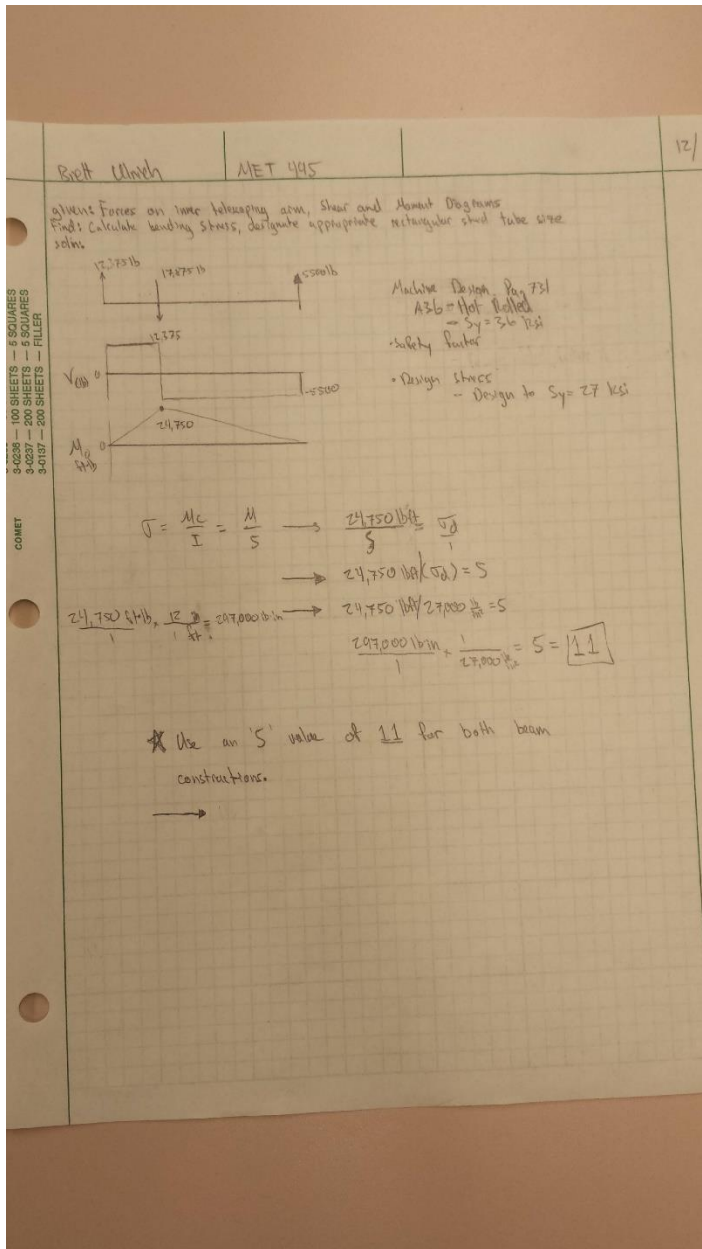 12/
Brett Ulrich MET 495
given: Forces on inner telescoping arm, Shear and Moment Diagrams
Find: Calculate bending stress, designate appropriate rectangular steel tube size
soln:
12,375 lb 17,875 lb 5500 lb
Machine Design Pg. 731
A36 - Hot Rolled
- Sy = 36 ksi
• Safety factor
• Design stress
- Design to Sy = 27 ksi
12,375
V(lb) 0
-5500
24,750
M 0
ft-lb
σ = Mc/I = M/S → 24,750 lbft/S = σd/1
→ 24,750 lbft/(σd) = S
24,750 ft·lb/1 × 12 in/1 ft = 297,000 lb in → 24,750 lbft/27,000 = S
297,000 lb in/1 × 1/27,000 = S = 11
* Use an 'S' value of 11 for both beam
constructions.
→
3-0236 — 100 SHEETS — 5 SQUARES
3-0237 — 200 SHEETS — 5 SQUARES
3-0137 — 200 SHEETS — FILLER
COMET